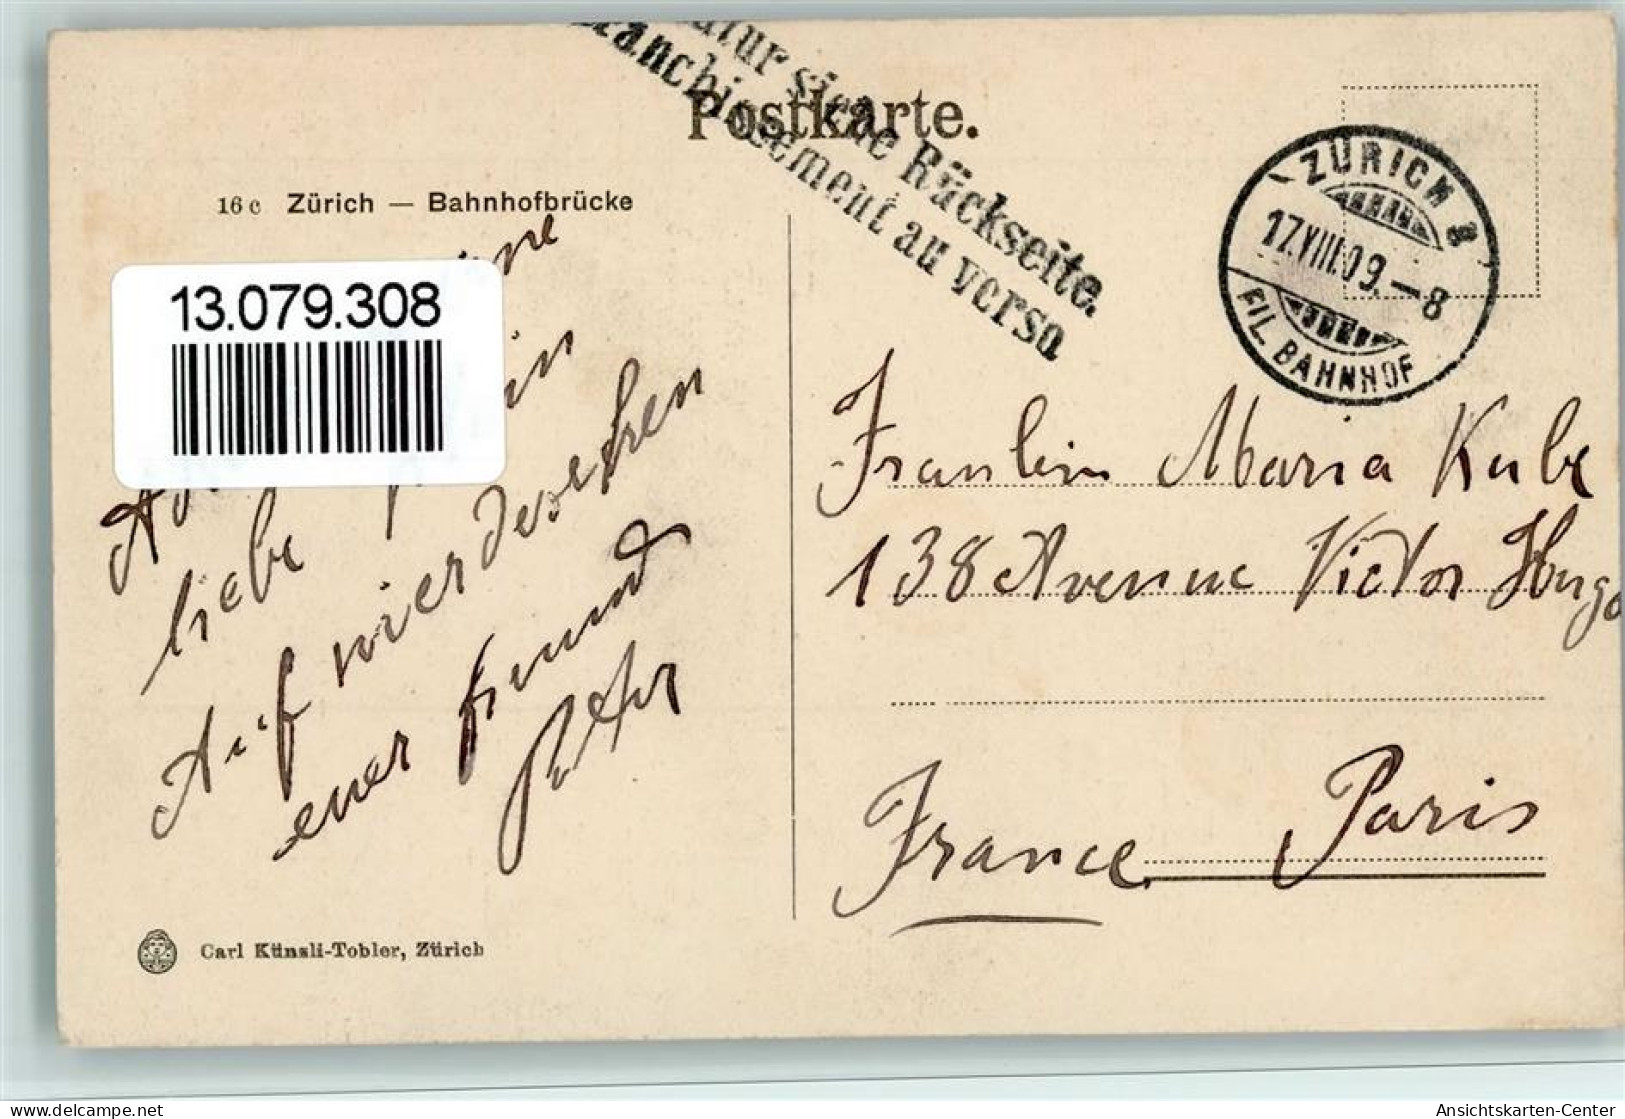 Postkarte.
Rückseite.
au verso
16 c Zürich — Bahnhofbrücke
13.079.308
liebe
Auf wiedersehen
euer freund
Peter
ZÜRICH 8
17.VIII.09.–8
FIL. BAHNHOF
Fraulein Maria Kube
138 Avenue Victor Hugo
Paris
France
Carl Künzli-Tobler, Zürich
Ansichtskarten-Center
www.delcampe.net